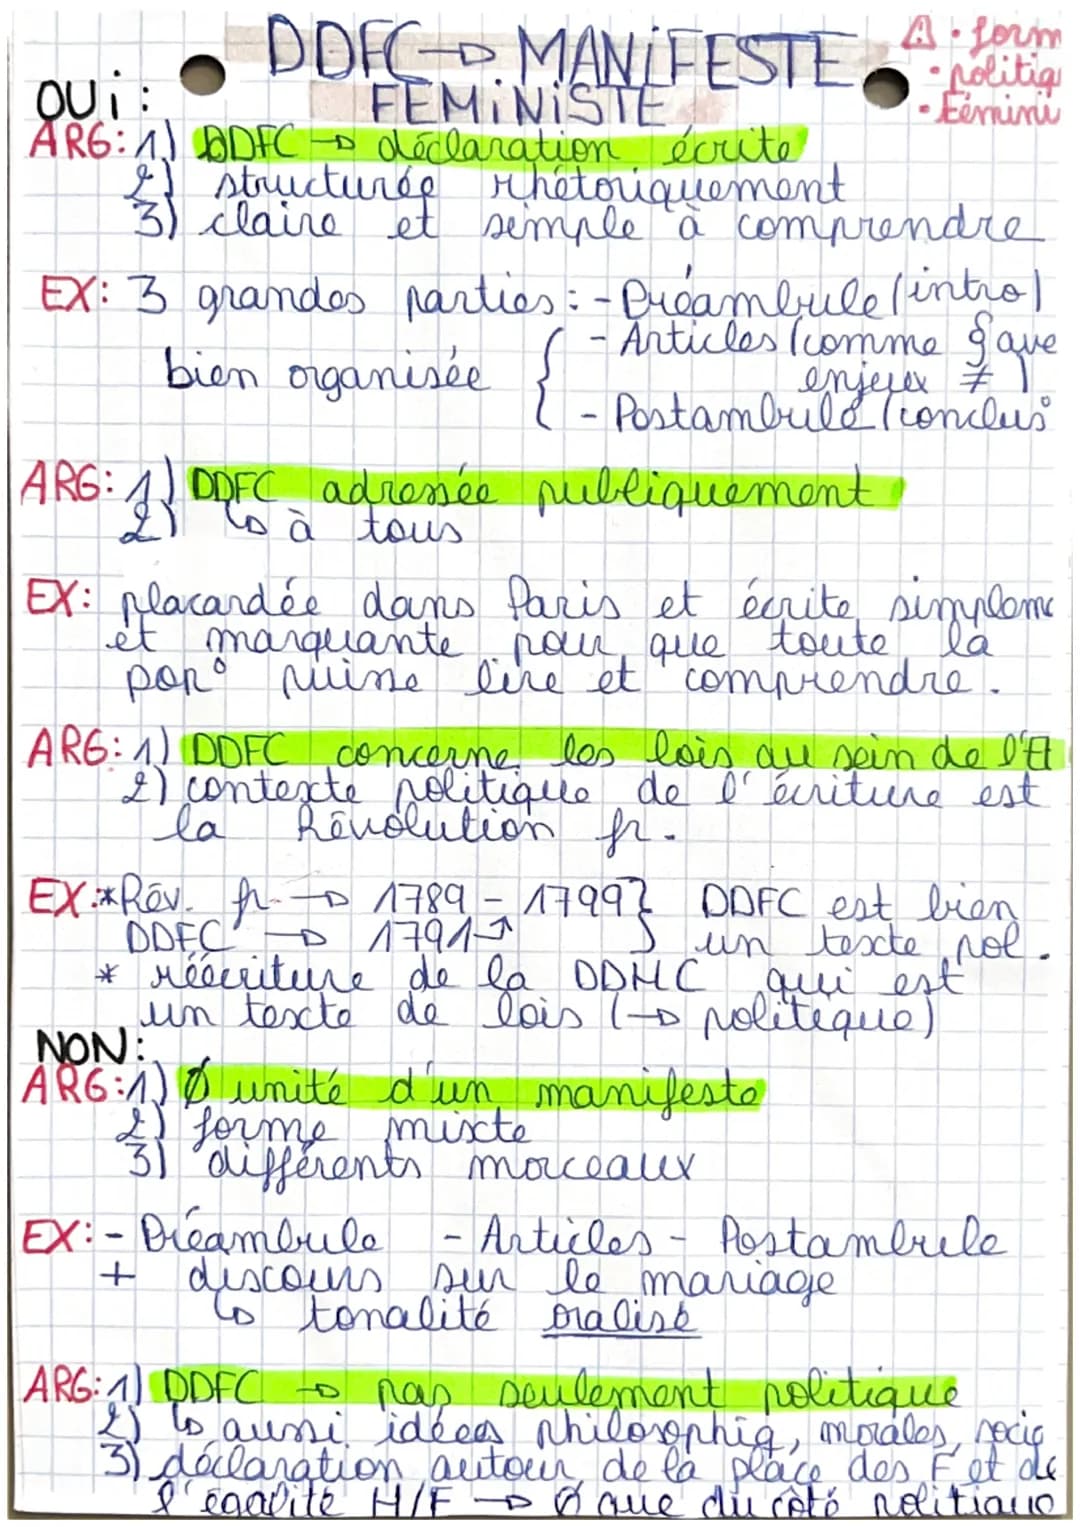 DDFC → MANIFESTE
FÉMINISTE
⚠ • form
• politiq
• Fémini
OUi :
ARG: 1) DDFC → déclaration écrite
2) structurée rhétoriquement
3) claire et simple à comprendre
EX: 3 grandes parties : - Préambule (intro)
- Articles (comme § ave
bien organisée { enjeux ≠ )
- Postambule (conclus°
ARG: 1) DDFC adressée publiquement
2) ↳ à tous
EX: placardée dans Paris et écrite simpleme
et marquante pour que toute la
pop° puisse lire et comprendre.
ARG: 1) DDFC concerne les lois au sein de l'Et
2) contexte politique de l'écriture est
la Révolution fr.
EX: * Rév. fr. → 1789 - 1799 } DDFC est bien
DDFC → 1791 ↗ un texte pol.
* réécriture de la DDHC qui est
un texte de lois (→ politique)
NON :
ARG: 1) Ø unité d'un manifeste
2) forme mixte
3) différents morceaux
EX: - Préambule - Articles - Postambule
+ discours sur le mariage
↳ tonalité oralisé
ARG: 1) DDFC → pas seulement politique
2) ↳ aussi idées philosophiq, morales, socia
3) déclaration autour de la place des F et de
l'égalité H/F → Ø que du côté politique